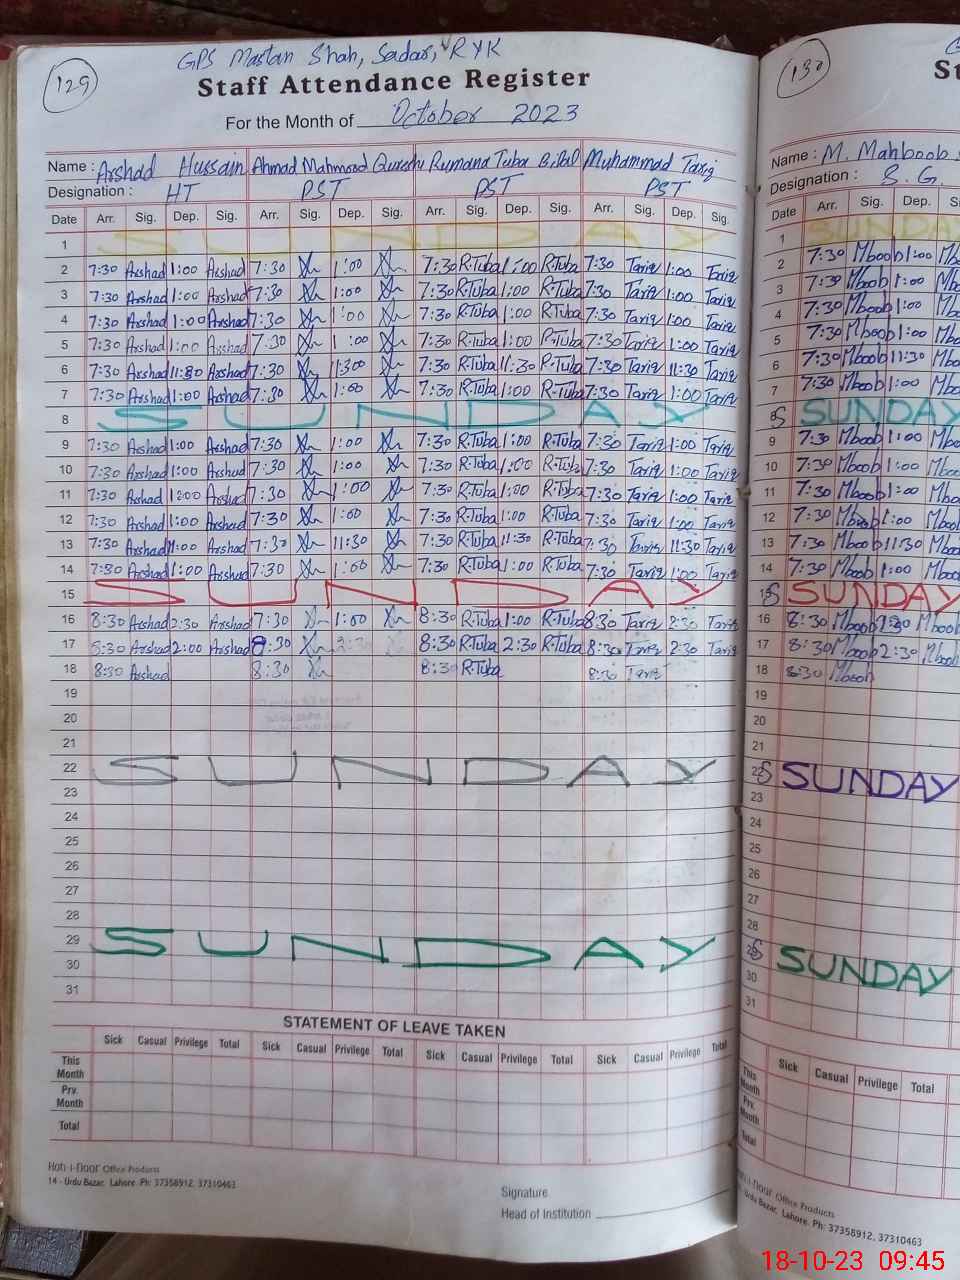 129
GPS Mastan Shah, Sadar, RYK
Staff Attendance Register
For the Month of October 2023
Name : Arshad Hussain Ahmad Mahmood Qureshi Rumana Tuba Bilal Muhammad Tariq
Designation : HT PST PST PST
Date Arr. Sig. Dep. Sig. Arr. Sig. Dep. Sig. Arr. Sig. Dep. Sig. Arr. Sig. Dep. Sig.
1 SUNDAY
2 7:30 Arshad 1:00 Arshad 7:30 1:00 7:30 R.Tuba 1:00 R.Tuba 7:30 Tariq 1:00 Tariq
3 7:30 Arshad 1:00 Arshad 7:30 1:00 7:30 R.Tuba 1:00 R.Tuba 7:30 Tariq 1:00 Tariq
4 7:30 Arshad 1:00 Arshad 7:30 1:00 7:30 R.Tuba 1:00 R.Tuba 7:30 Tariq 1:00 Tariq
5 7:30 Arshad 1:00 Arshad 7:30 1:00 7:30 R.Tuba 1:00 R.Tuba 7:30 Tariq 1:00 Tariq
6 7:30 Arshad 11:30 Arshad 7:30 11:300 7:30 R.Tuba 11:30 R.Tuba 7:30 Tariq 11:30 Tariq
7 7:30 Arshad 1:00 Arshad 7:30 1:00 7:30 R.Tuba 1:00 R.Tuba 7:30 Tariq 1:00 Tariq
8 SUNDAY
9 7:30 Arshad 1:00 Arshad 7:30 1:00 7:30 R.Tuba 1:00 R.Tuba 7:30 Tariq 1:00 Tariq
10 7:30 Arshad 1:00 Arshad 7:30 1:00 7:30 R.Tuba 1:00 R.Tuba 7:30 Tariq 1:00 Tariq
11 7:30 Arshad 1:00 Arshad 7:30 1:00 7:30 R.Tuba 1:00 R.Tuba 7:30 Tariq 1:00 Tariq
12 7:30 Arshad 1:00 Arshad 7:30 1:00 7:30 R.Tuba 1:00 R.Tuba 7:30 Tariq 1:00 Tariq
13 7:30 Arshad 11:00 Arshad 7:30 11:30 7:30 R.Tuba 11:30 R.Tuba 7:30 Tariq 11:30 Tariq
14 7:30 Arshad 1:00 Arshad 7:30 1:00 7:30 R.Tuba 1:00 R.Tuba 7:30 Tariq 1:00 Tariq
15 SUNDAY
16 8:30 Arshad 2:30 Arshad 7:30 1:00 8:30 R.Tuba 1:00 R.Tuba 8:30 Tariq 2:30 Tariq
17 8:30 Arshad 2:00 Arshad 8:30 2:30 8:30 R.Tuba 2:30 R.Tuba 8:30 Tariq 2:30 Tariq
18 8:30 Arshad 8:30 8:30 R.Tuba 8:30 Tariq
19
20
21
22 SUNDAY
23
24
25
26
27
28
29 SUNDAY
30
31
STATEMENT OF LEAVE TAKEN
Sick Casual Privilege Total Sick Casual Privilege Total Sick Casual Privilege Total Sick Casual Privilege Total
This Month
Prv. Month
Total
Hoti-i-noor Office Products
14 - Urdu Bazar, Lahore. Ph: 37358912, 37310463
Signature
Head of Institution
130
St
Name : M. Mahboob
Designation : S. G.
Date Arr. Sig. Dep.
1 SUNDAY
2 7:30 Mboob 1:00 Mb
3 7:30 Mboob 1:00 Mb
4 7:30 Mboob 1:00 Mb
5 7:30 Mboob 1:00 Mb
6 7:30 Mboob 11:30 Mb
7 7:30 Mboob 1:00 Mb
8 S SUNDAY
9 7:30 Mboob 1:00 Mb
10 7:30 Mboob 1:00 Mb
11 7:30 Mboob 1:00 Mb
12 7:30 Mboob 1:00 Mb
13 7:30 Mboob 11:30 Mb
14 7:30 Mboob 1:00 Mb
15 S SUNDAY
16 8:30 Mboob Mboob
17 8:30 Mboob 2:30 Mboob
18 8:30 Mboob
19
20
21
22 S SUNDAY
23
24
25
26
27
28
29 S SUNDAY
30
31
Sick Casual Privilege Total
This Month
Prv. Month
Total
Office Products
Urdu Bazar, Lahore. Ph: 37358912, 37310463
18-10-23 09:45